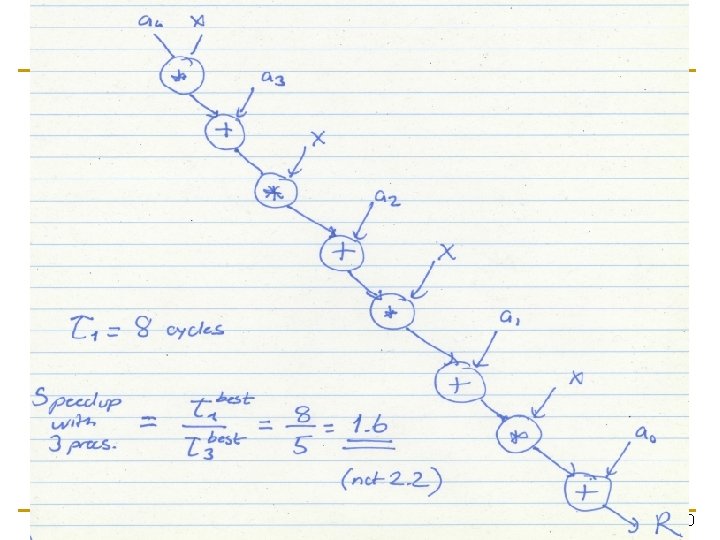 a₄ x
*
a₃
+
x
*
a₂
+
x
*
a₁
+
x
*
a₀
+
R
T₁ = 8 cycles
Speedup with 3 procs. = T₁ᵇᵉˢᵗ / T₃ᵇᵉˢᵗ = 8 / 5 = 1.6
(not 2.2)
0